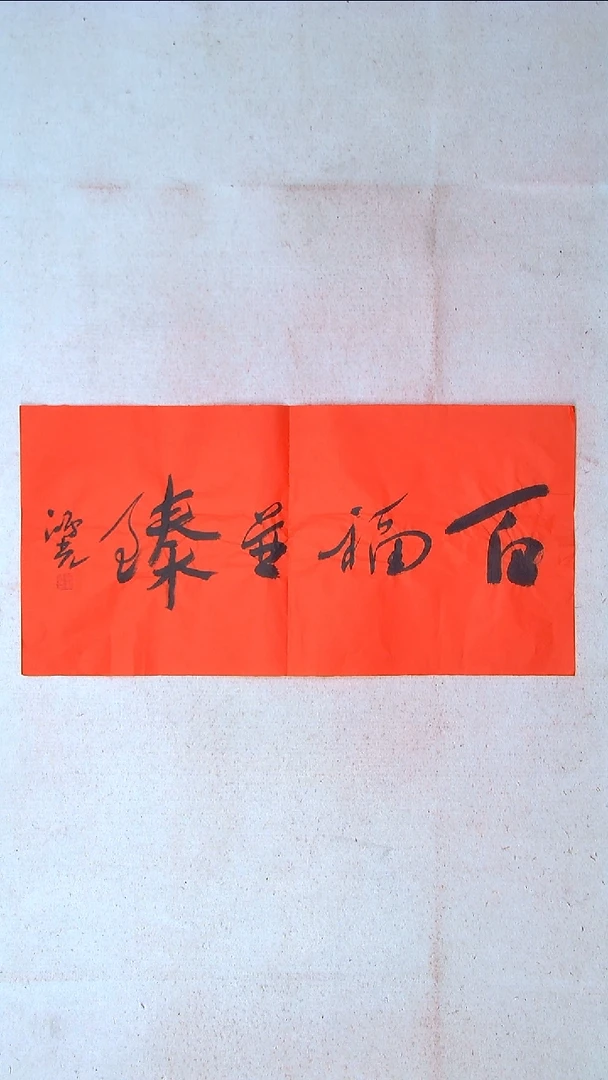 百福並臻